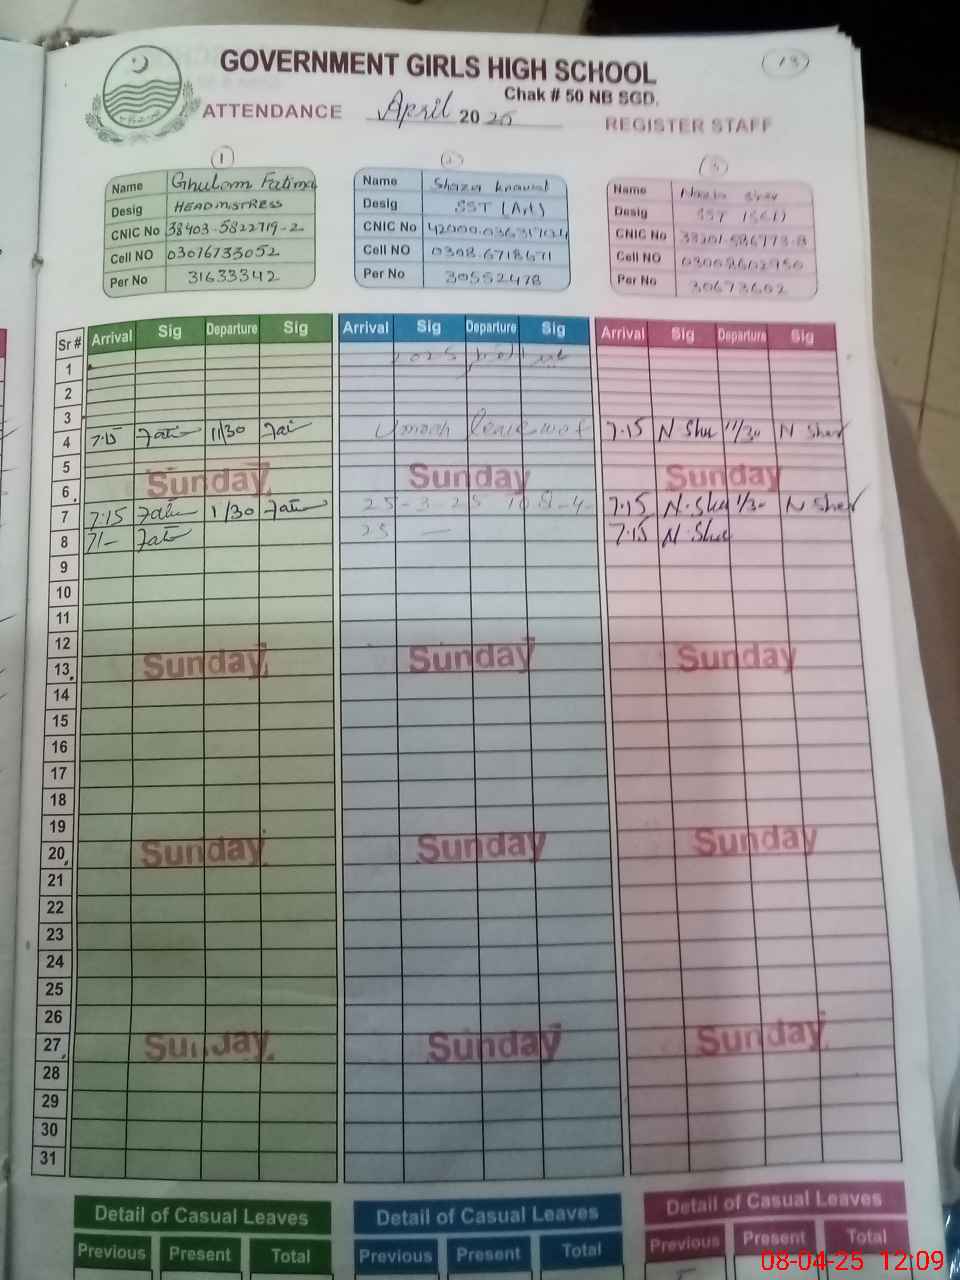 GOVERNMENT GIRLS HIGH SCHOOL
Chak # 50 NB SGD.
13
ATTENDANCE April 2025 REGISTER STAFF
1 2 3
Name Ghulam Fatima
Desig HEADMISTRESS
CNIC No 38403-5822719-2
Cell NO 03076733052
Per No 31633342
Name Shazia
Desig SST (Art)
CNIC No
Cell NO 0308-6718671
Per No 30552478
Name
Desig SST
CNIC No
Cell NO 03008602950
Per No 30673602
Sr # Arrival Sig Departure Sig Arrival Sig Departure Sig Arrival Sig Departure Sig
1 2025
2
3
4 7:15 11/30 leave 7.15 N Sher 11/30 N Sher
5
6 Sunday Sunday Sunday
7 7:15 1/30 25-3-25 7.15 N.Sher 1/30 N Sher
8 7/- 25 7.15 N.Sher
9
10
11
12
13 Sunday Sunday Sunday
14
15
16
17
18
19
20 Sunday Sunday Sunday
21
22
23
24
25
26
27 Sunday Sunday Sunday
28
29
30
31
Detail of Casual Leaves Detail of Casual Leaves Detail of Casual Leaves
Previous Present Total Previous Present Total Previous Present Total
08-04-25 12:09